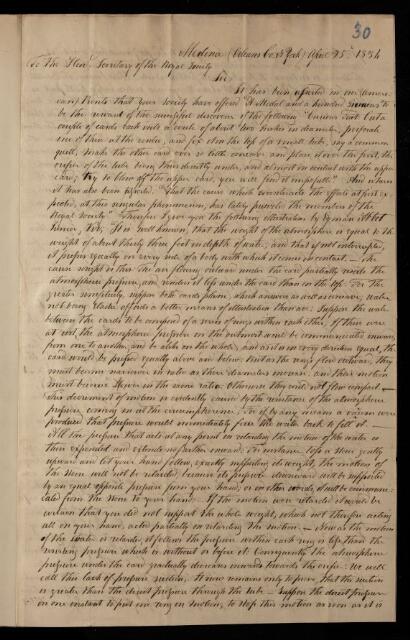 30
Medina (Orleans Co. N York) April 25th 1834
To The Hon. Secretary of the Royal Society
Sir
It has been asserted in our (Ameri-
can) Prints that your society have offered a Medal and a hundred guineas to
be the reward of the successful discoverer of the following
couple of cards each with a scale of about two inches in diameter, perforate
one of them at the centre, and fix it on the top of a small tube, say a common
quill, make the other card ever so little concave and place it over the first, the
orifice of the tube being thus directly under, and almost in contact with the upper
card; try to blow off the upper card, you will find it impossible" And where
it has also been asserted "that the cause which counteracts the effect at first ex-
pected, at this singular phenomenon, has lately puzzled the members of the
Royal Society" Therefore I give you the following illustration
It is well known, that the weight of the atmosphere is equal to the
weight of about thirty three feet in depth of water; and that if not interrupted,
it presses equally on every side of a body with which it comes in contact. — The
cause sought is this the air flowing outward under the card partially resists the
atmospheric pressure, and renders it less under the card than on the top. For the
greater simplicity, suppose both cards plane, which answers as well as concave, water
will being Elastic affords a better means of illustration than air. Suppose the water
between the cards to be composed of a series of rings within each other, if these were
at rest, the atmospheric pressure on the outermost would be communicated inward,
from one to another, and be alike on the whole, and as it is in every direction equal, the
card would be pressed equally above and below. But as the rings flow outward, they
must become narrower in ratio as their diameters increase, and their motion
must become slower in the same ratio. Otherwise they could not flow compact —
This decrement of motion is evidently caused by the resistance of the atmospheric
pressure coming in at the circumference. For if by any means a vacuum were
produced that pressure would immediately force the water back to fill it. —
All the pressure that acts at any point in retarding the motion of the water is
thus expended and extends no farther inward. For instance. Toss a stone gently
upward and let your hand follow, exactly supporting its weight, the motion of
the stone will not be retarded because its pressure downward will be supported
by an equal opposite pressure from your hand; or in other words, it will be communi-
cated from the stone to your hand. If the motion were retarded it would be
certain that you did not support the whole weight, which not therefore acting
all on your hand, acted partially in retarding the motion. — Now as the motion
of the water is retarded, it follows the pressure within each ring is less than the
resisting pressure which is without or before it. Consequently the atmospheric
pressure under the card gradually decreases inwards towards the orifice. We will
call this lack of pressure suction. It now remains only to prove, that the suction
is greater than the direct pressure through the tube. — Suppose the direct pressure
in one instant to put one ring in motion, to stop this motion as soon as it is